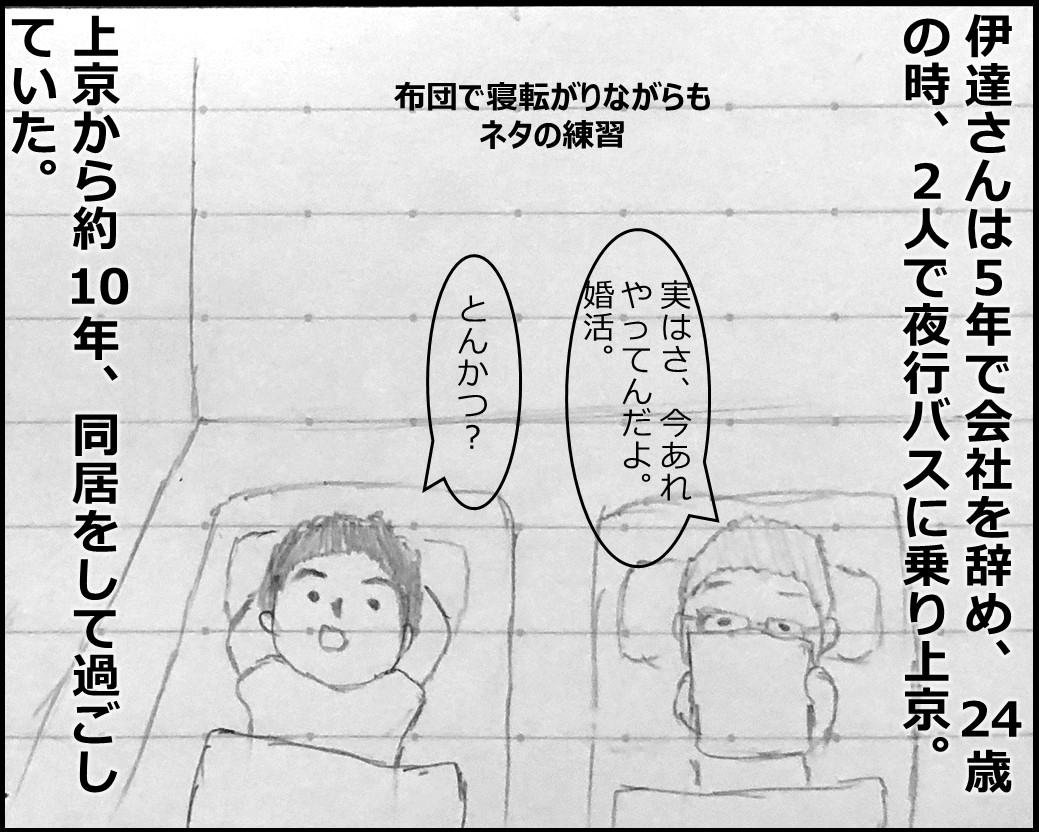 伊達さんは5年で会社を辞め、24歳
の時、2人で夜行バスに乗り上京。
布団で寝転がりながらも
ネタの練習
実はさ、今あれ
やってんだよ。
婚活。
とんかつ?
上京から約10年、同居をして過ごし
ていた。